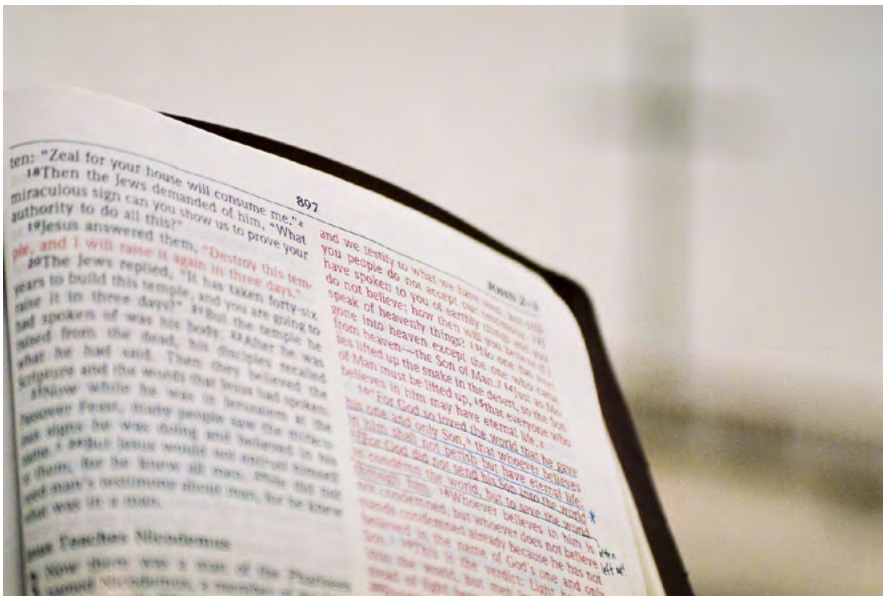 897
JOHN 2-3
ten: "Zeal for your house will consume me."
18Then the Jews demanded of him, "What
miraculous sign can you show us to prove your
authority to do all this?"
19Jesus answered them, "Destroy this tem-
ple, and I will raise it again in three days."
20The Jews replied, "It has taken forty-six
years to build this temple, and you are going to
raise it in three days?" 21But the temple he
had spoken of was his body. 22After he was
raised from the dead, his disciples recalled
what he had said. Then they believed the
Scripture and the words that Jesus had spoken.
23Now while he was in Jerusalem at the
Passover Feast, many people saw the miracu-
lous signs he was doing and believed in his
name. 24But Jesus would not entrust himself
to them, for he knew all men. 25He did not
need man's testimony about man, for he knew
what was in a man.
Jesus Teaches Nicodemus
Now there was a man of the Pharisees
named Nicodemus, a member of
and we testify to what we have seen, but still
you people do not accept our testimony. 12I
have spoken to you of earthly things and you
do not believe; how then will you believe if I
speak of heavenly things? 13No one has ever
gone into heaven except the one who came
from heaven—the Son of Man. 14Just as Mo-
ses lifted up the snake in the desert, so the Son
of Man must be lifted up, 15that everyone who
believes in him may have eternal life.
16"For God so loved the world that he gave
his one and only Son, that whoever believes
in him shall not perish but have eternal life.
17For God did not send his Son into the world
to condemn the world, but to save the world
through him. 18Whoever believes in him is
not condemned, but whoever does not believe
stands condemned already because he has not
believed in the name of God's one and only
Son. 19This is the verdict: Light has
into the world, but men
instead of light